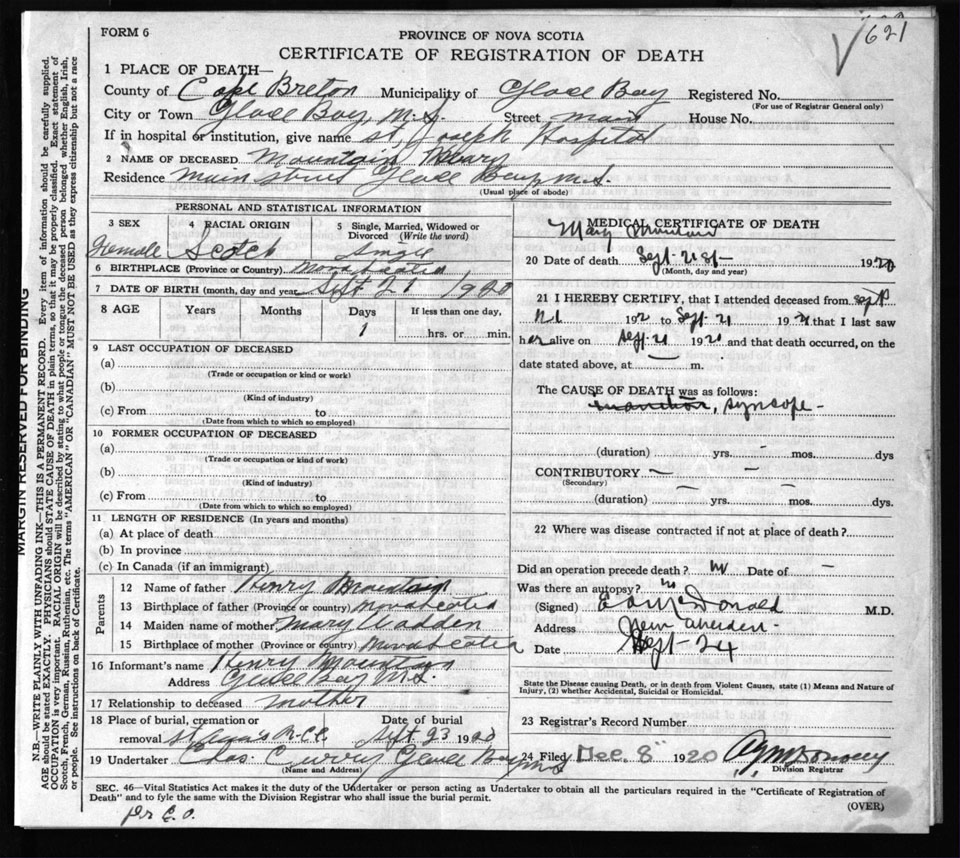 FORM 6
PROVINCE OF NOVA SCOTIA
621
CERTIFICATE OF REGISTRATION OF DEATH
1 PLACE OF DEATH—
County of Cape Breton Municipality of Glace Bay Registered No.
(For use of Registrar General only)
City or Town Glace Bay, N.S. Street main House No.
If in hospital or institution, give name St. Joseph Hospital
2 NAME OF DECEASED Mountain Mary
Residence main street Glace Bay N.S.
(Usual place of abode)
PERSONAL AND STATISTICAL INFORMATION
3 SEX 4 RACIAL ORIGIN 5 Single, Married, Widowed or Divorced (Write the word)
Female Scotch Single
6 BIRTHPLACE (Province or Country) Nova Scotia
7 DATE OF BIRTH (month, day and year) Sept 21 1920
8 AGE Years Months Days If less than one day,
1 hrs. or min.
9 LAST OCCUPATION OF DECEASED
(a)
(Trade or occupation or kind or work)
(b)
(Kind of industry)
(c) From to
(Date from which to which so employed)
10 FORMER OCCUPATION OF DECEASED
(a)
(Trade or occupation or kind of work)
(b)
(Kind of industry)
(c) From to
(Date from which to which so employed)
11 LENGTH OF RESIDENCE (In years and months)
(a) At place of death
(b) In province
(c) In Canada (if an immigrant)
Parents
12 Name of father Henry Mountain
13 Birthplace of father (Province or country) Nova Scotia
14 Maiden name of mother Mary Wadden
15 Birthplace of mother (Province or country) Nova Scotia
16 Informant's name Henry Mountain
Address Glace Bay N.S.
17 Relationship to deceased mother
18 Place of burial, cremation or Date of burial
removal St Anns R.C.C. Sept. 23 1920
19 Undertaker Chas. Curry Glace Bay N.S.
(Name and Address)
MEDICAL CERTIFICATE OF DEATH
Mary Mountain
20 Date of death Sept. 21st— 1920
(Month, day and year)
21 I HEREBY CERTIFY, that I attended deceased from Sept
21 192 to Sept. 21 1920 that I last saw
her alive on Sept. 21 1920 and that death occurred, on
date stated above, at — m.
The CAUSE OF DEATH was as follows:
syncope -
(duration) yrs. mos. dys
CONTRIBUTORY
(Secondary)
(duration) yrs. mos. dys.
22 Where was disease contracted if not at place of death?
Did an operation precede death? no Date of —
Was there an autopsy? no
(Signed) McDonald M.D.
Address New Aberdeen -
Date Sept - 24
State the Disease causing Death, or in death from Violent Causes, state (1) Means and Nature of
Injury, (2) whether Accidental, Suicidal or Homicidal.
23 Registrar's Record Number
24 Filed Dec. 8 1920
Division Registrar
SEC. 46—Vital Statistics Act makes it the duty of the Undertaker or person acting as Undertaker to obtain all the particulars required in the "Certificate of Registration of
Death" and to fyle the same with the Division Registrar who shall issue the burial permit.
(OVER)
per C.O.
MARGIN RESERVED FOR BINDING
N.B.—WRITE PLAINLY WITH UNFADING INK—THIS IS A PERMANENT RECORD. Every item of information should be carefully supplied.
AGE should be stated EXACTLY. PHYSICIANS should STATE CAUSE OF DEATH in plain terms, so that it may be properly classified. Exact statement of
OCCUPATION is very important. RACIAL ORIGIN will be described by stating to what people or tongue the deceased person belonged whether English, Irish,
Scotch, French, German, Russian, Ruthenian, etc. The terms "AMERICAN" OR "CANADIAN" MUST NOT BE USED as they express citizenship but not a race
or people. See instructions on back of Certificate.